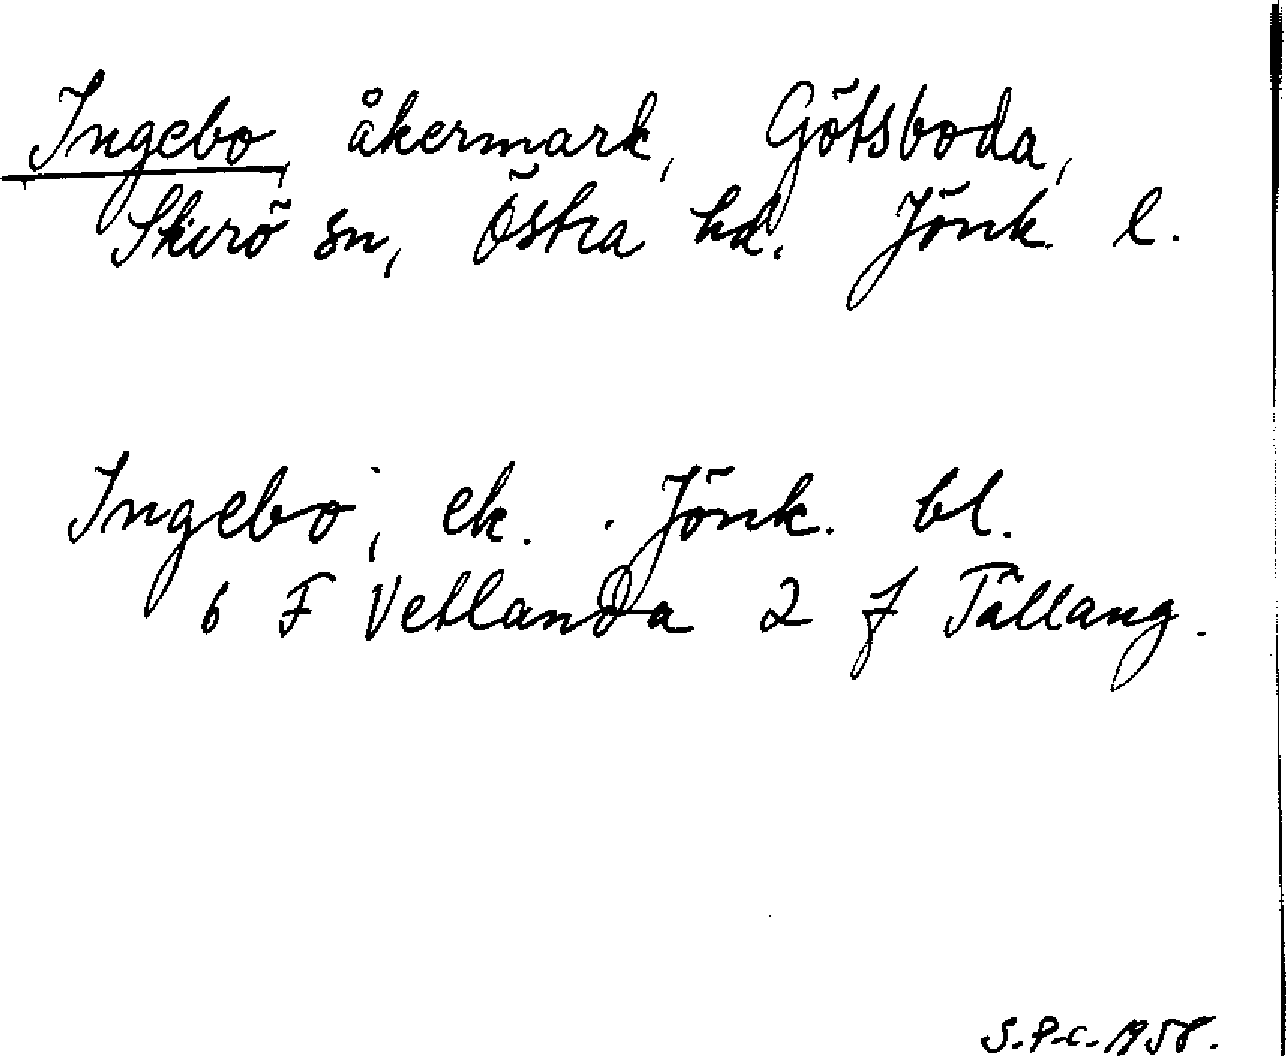 Ingebo, åkermark, Götsboda,
Skirö sn, Östra hd. Jönk. l.
Ingebo, ek. Jönk. bl.
6 F Vetlanda 2 f Tällang.
S.P.C. 1958.